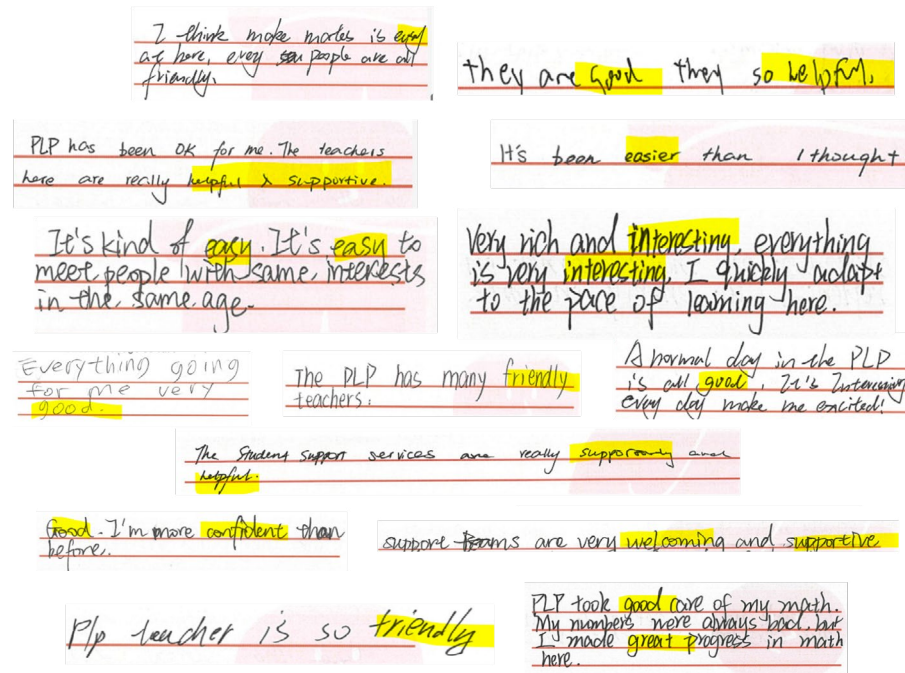 I think make mates is easy
at here, every people are all
friendly.
they are Good they so helpful.
PLP has been OK for me. The teachers
here are really helpful & supportive.
It's been easier than I thought
It's kind of easy. It's easy to
meet people with same interests
in the same age.
Very rich and interesting, everything
is very interesting. I quickly adapt
to the pace of learning here.
Everything going
for me very
good.
The PLP has many friendly
teachers.
A normal day in the PLP
is all good. It's
every day make me excited!
The Student Support services are really and
helpful.
Good. I'm more confident than
before.
support teams are very welcoming and supportive
Plp teacher is so friendly
PLP took good care of my math.
My numbers were always bad. but
I made great progress in math
here.